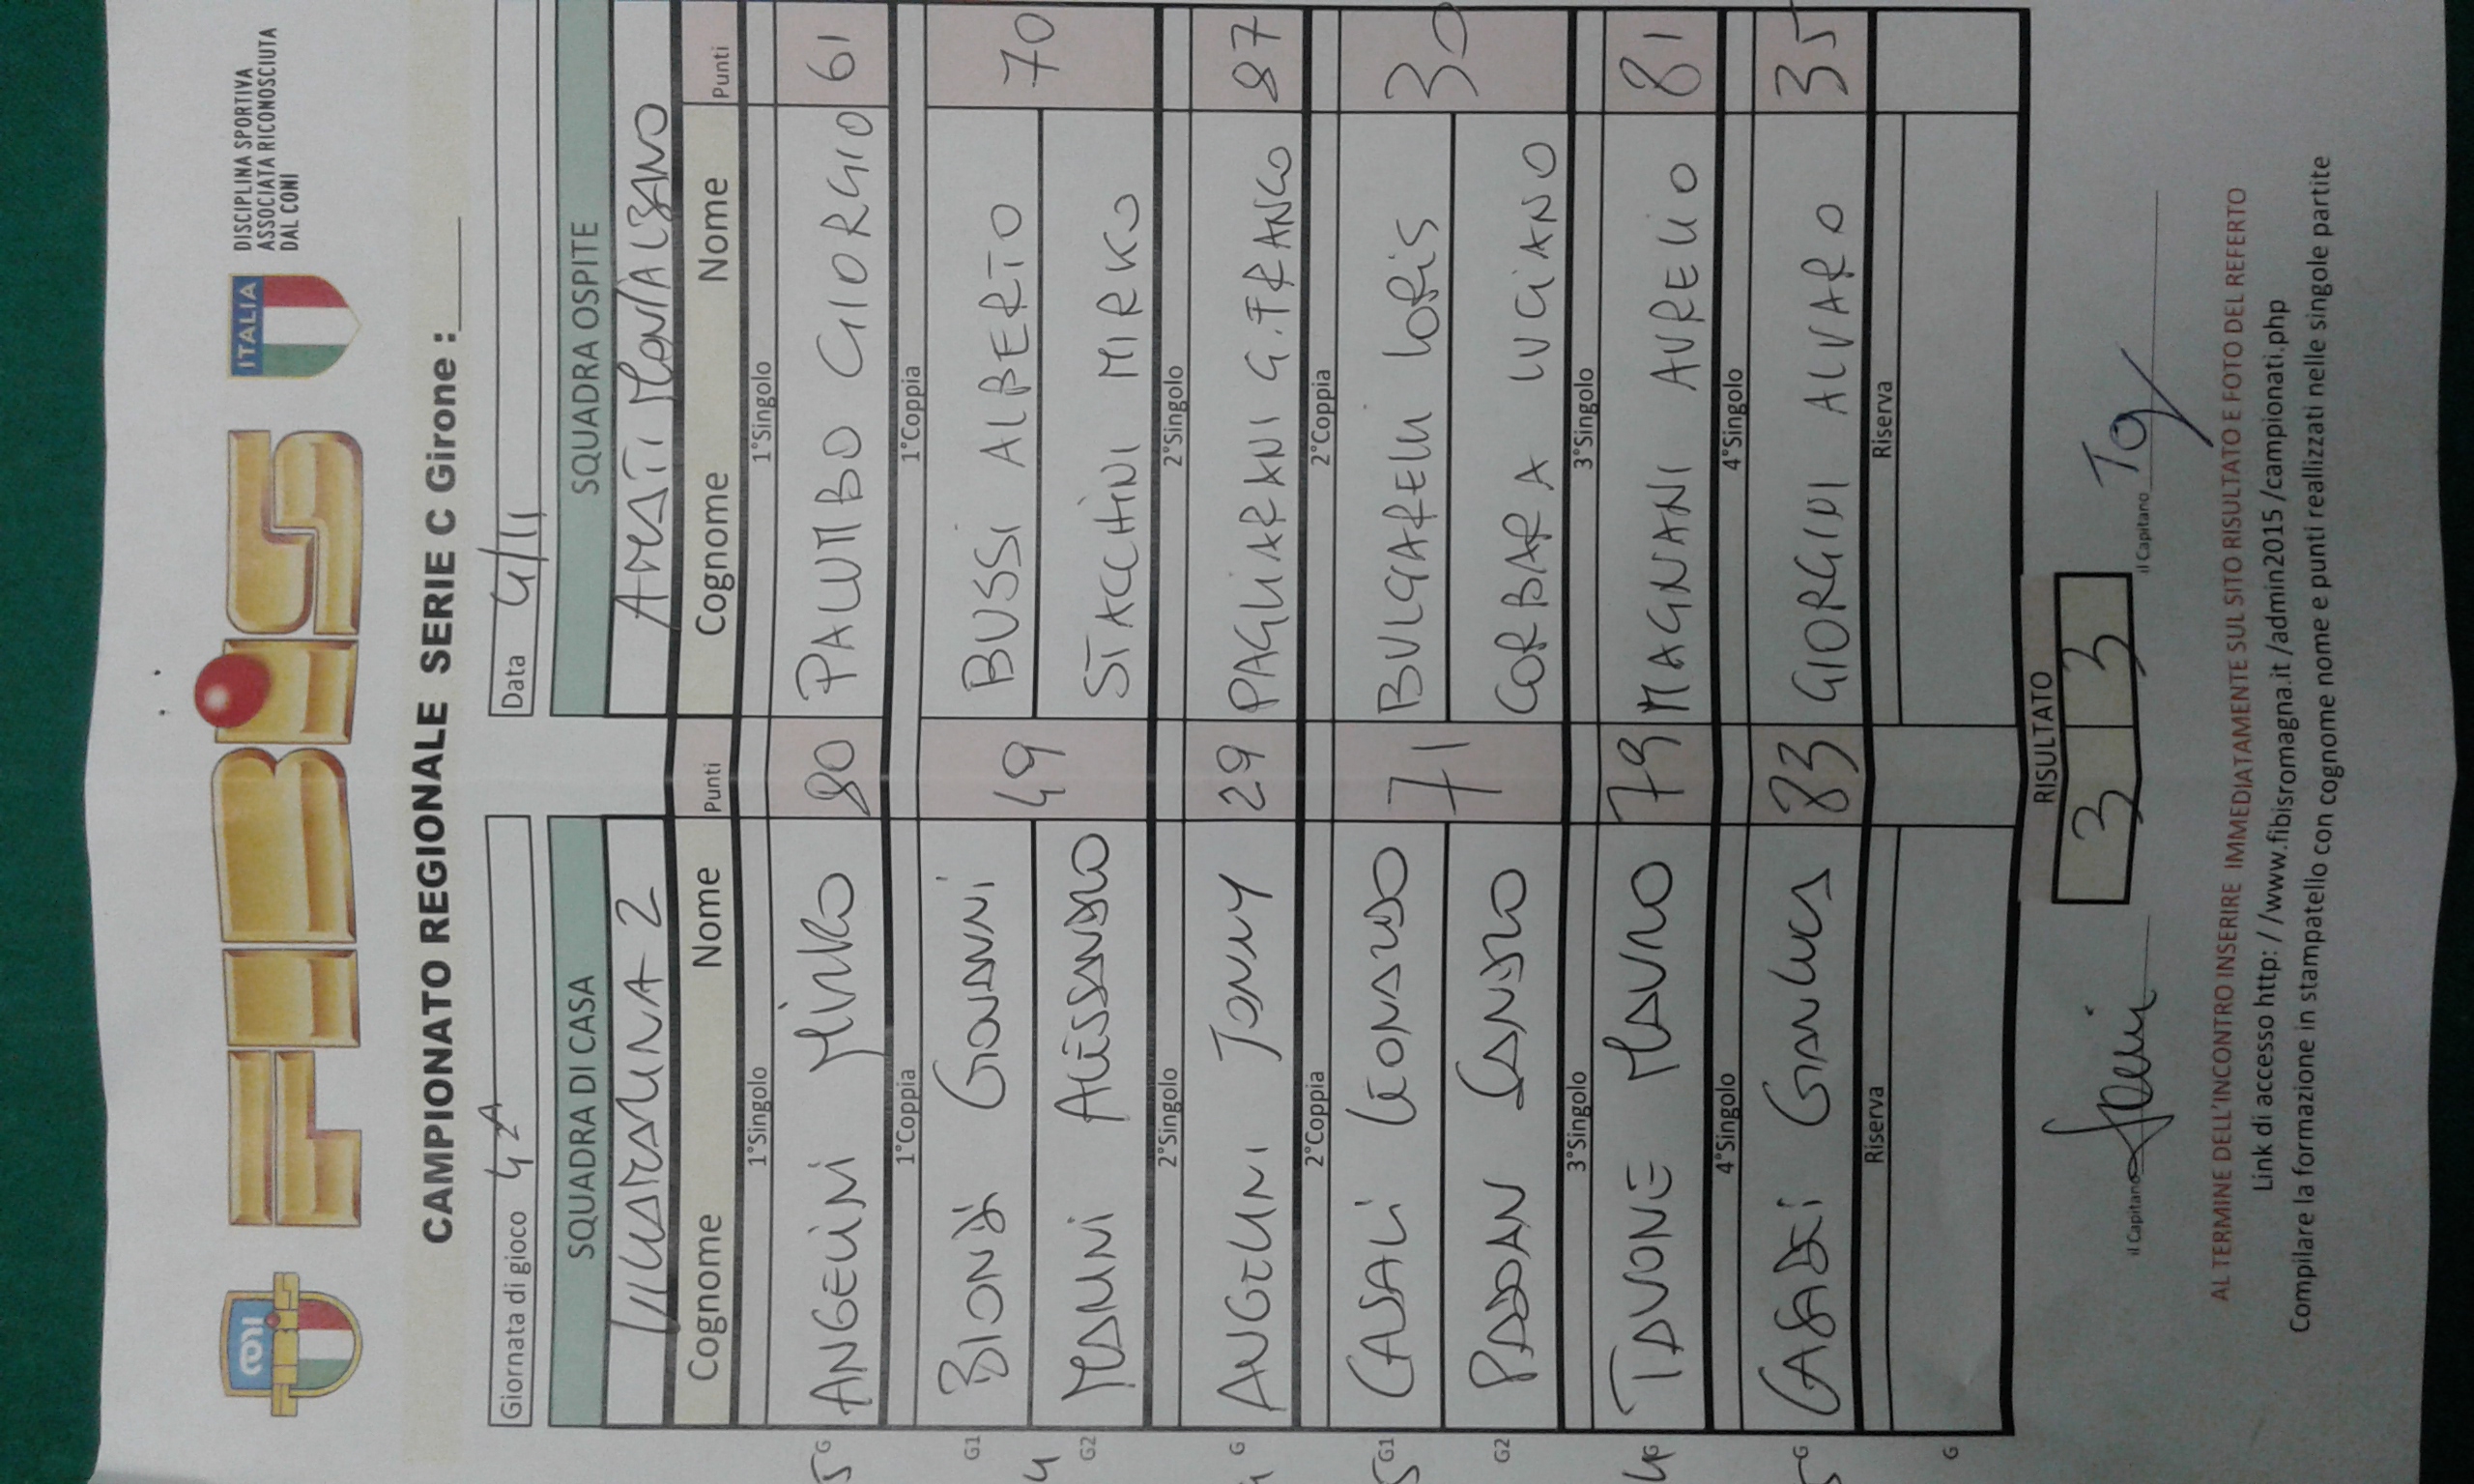 CONI
FIBiS
FIBiS
ITALIA
DISCIPLINA SPORTIVA
ASSOCIATA RICONOSCIUTA
DAL CONI
CAMPIONATO REGIONALE SERIE C Girone :
Giornata di gioco 4A Data 4/11
SQUADRA DI CASA SQUADRA OSPITE
VILLAMARINA 2 AMATI MONTALBANO
Cognome Nome Punti Cognome Nome Punti
1°Singolo 1°Singolo
5 G ANGELINI Mirko 80 PALUMBO GIORGIO 61
1°Coppia 1°Coppia
G1 BIONDI GIOVANNI 49 BUSSI ALBERTO 70
4 G2 MANNI ALESSANDRO STACCHINI MIRKO
2°Singolo 2°Singolo
4 G ANGELINI JONNY 29 PAGLIARANI G.FRANCO 87
2°Coppia 2°Coppia
5 G1 CASALI LEONARDO 71 BULGARELLI LORIS 30
G2 PADOAN SANDRO CORBARA LUCIANO
3°Singolo 3°Singolo
4 G TAVONE MAURO 79 MAGNANI AURELIO 81
4°Singolo 4°Singolo
5 G CASADEI GIANLUCA 83 GIORGINI ALVARO 35
Riserva Riserva
G
RISULTATO
3 3
il Capitano il Capitano
AL TERMINE DELL'INCONTRO INSERIRE IMMEDIATAMENTE SUL SITO RISULTATO E FOTO DEL REFERTO
Link di accesso http: / /www.fibisromagna.it /admin2015 /campionati.php
Compilare la formazione in stampatello con cognome nome e punti reallizzati nelle singole partite